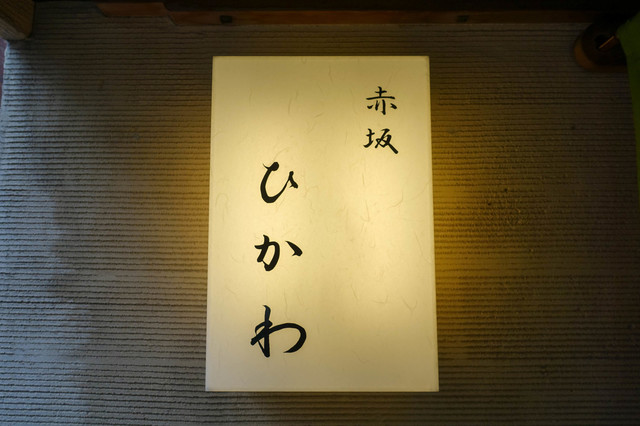 赤坂
ひかわ